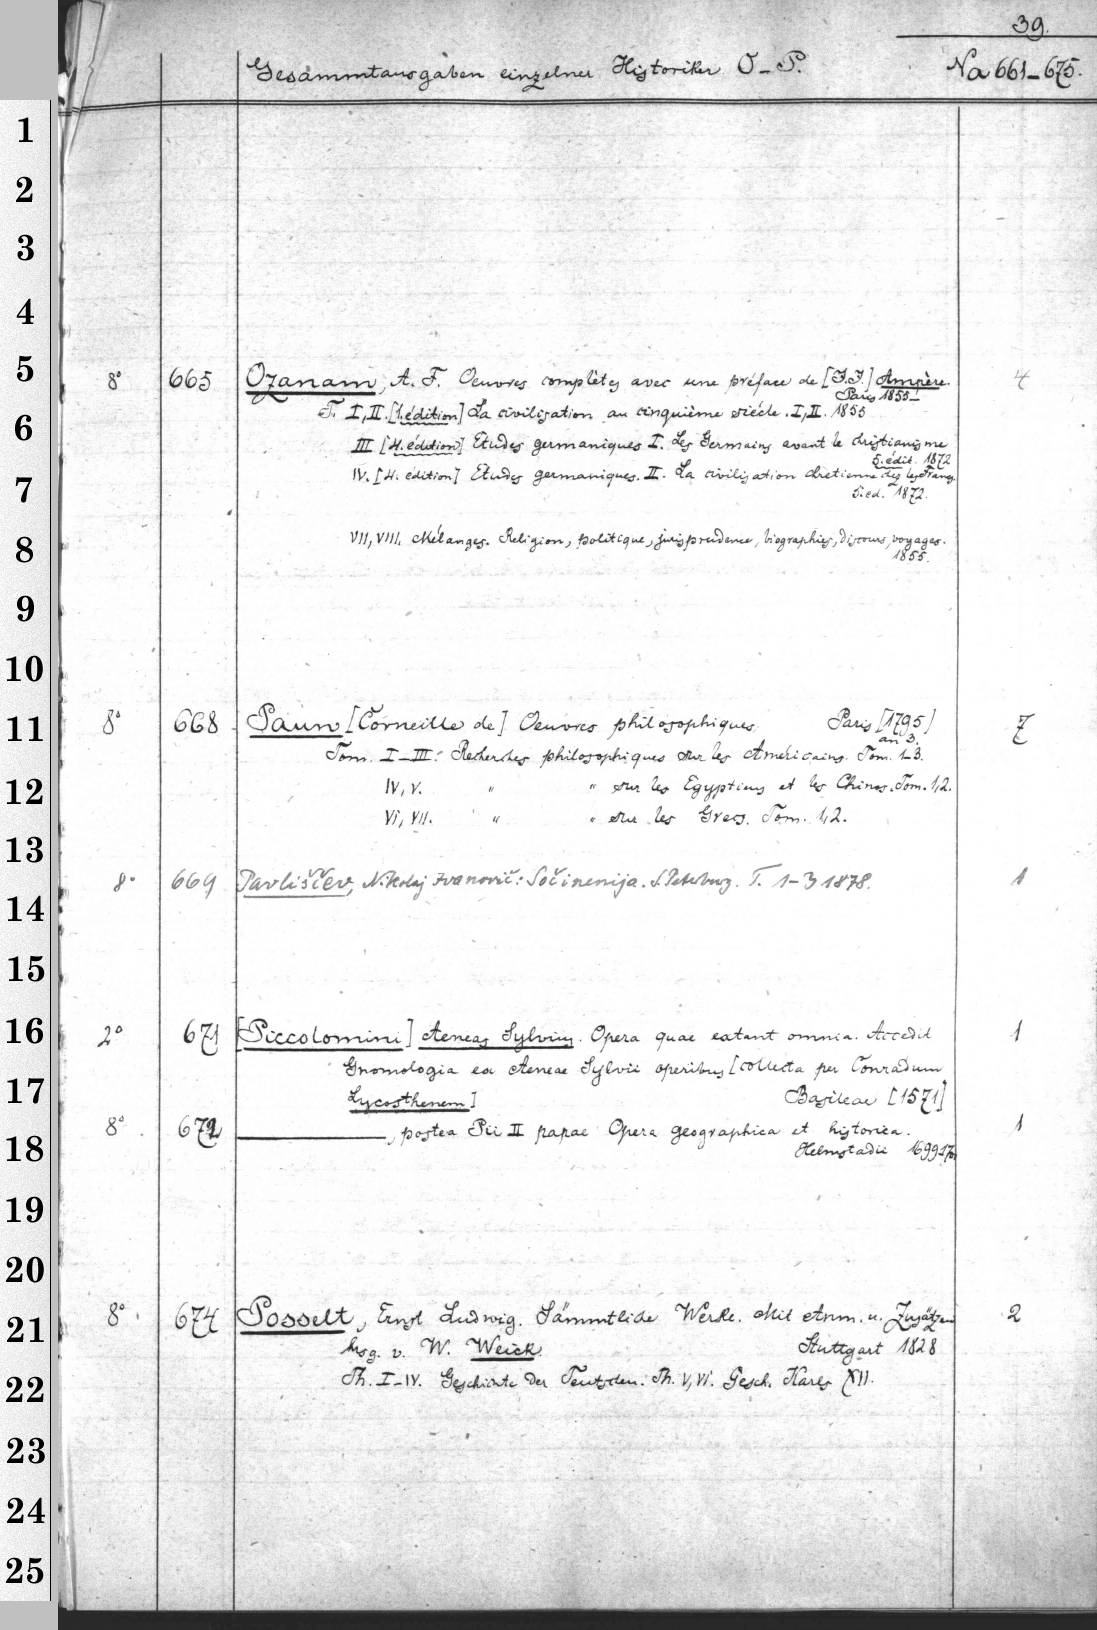 39.
Gesammtausgaben einzelner Historiker O-P. Na 661-675.
8° 665 Ozanam, A. F. Oeuvres complètes avec une préface de [J.J.] Ampère. 4
Paris 1855-
T. I, II. [1. édition] La civilisation au cinquième siècle. I, II. 1855
III [4. édition] Etudes germaniques I. Les Germains avant le christianisme
5. édit. 1872
IV. [4. édition] Etudes germaniques. II. La civilisation chretienne chez les Francs.
5. ed. 1872.
VII, VIII. Mélanges. Religion, politique, jurisprudence, biographies, discours, voyages.
1855.
8° 668 Pauw [Corneille de] Oeuvres philosophiques. Paris [1795] 7
an 3.
Tom. I-III: Recherches philosophiques sur les Américains. Tom. 1-3.
IV, V. " " sur les Egyptiens et les Chinos. Tom. 1,2.
VI, VII. " " sur les Grecs. Tom. 1,2.
8° 669 Pavliščev, Nikolaj Ivanovič: Sočinenija. S.Petersburg. T. 1-3 1878. 1
2° 671 [Piccolomini] Aeneas Sylvius. Opera quae extant omnia. Accedit 1
Gnomologia ex Aeneae Sylvii operibus [collecta per Conradum
Lycosthenem] Basileae [1571]
8° 672 ———, postea Pii II papae Opera geographica et historica. 1
Helmstadii 1699
8° 674 Posselt, Ernst Ludwig. Sämmtliche Werke. Mit Anm. u. Zusätzen 2
hrsg. v. W. Weick. Stuttgart 1828
Th. I-IV. Geschichte der Teutschen. Th. V, VI. Gesch. Karls XII.
1
2
3
4
5
6
7
8
9
10
11
12
13
14
15
16
17
18
19
20
21
22
23
24
25